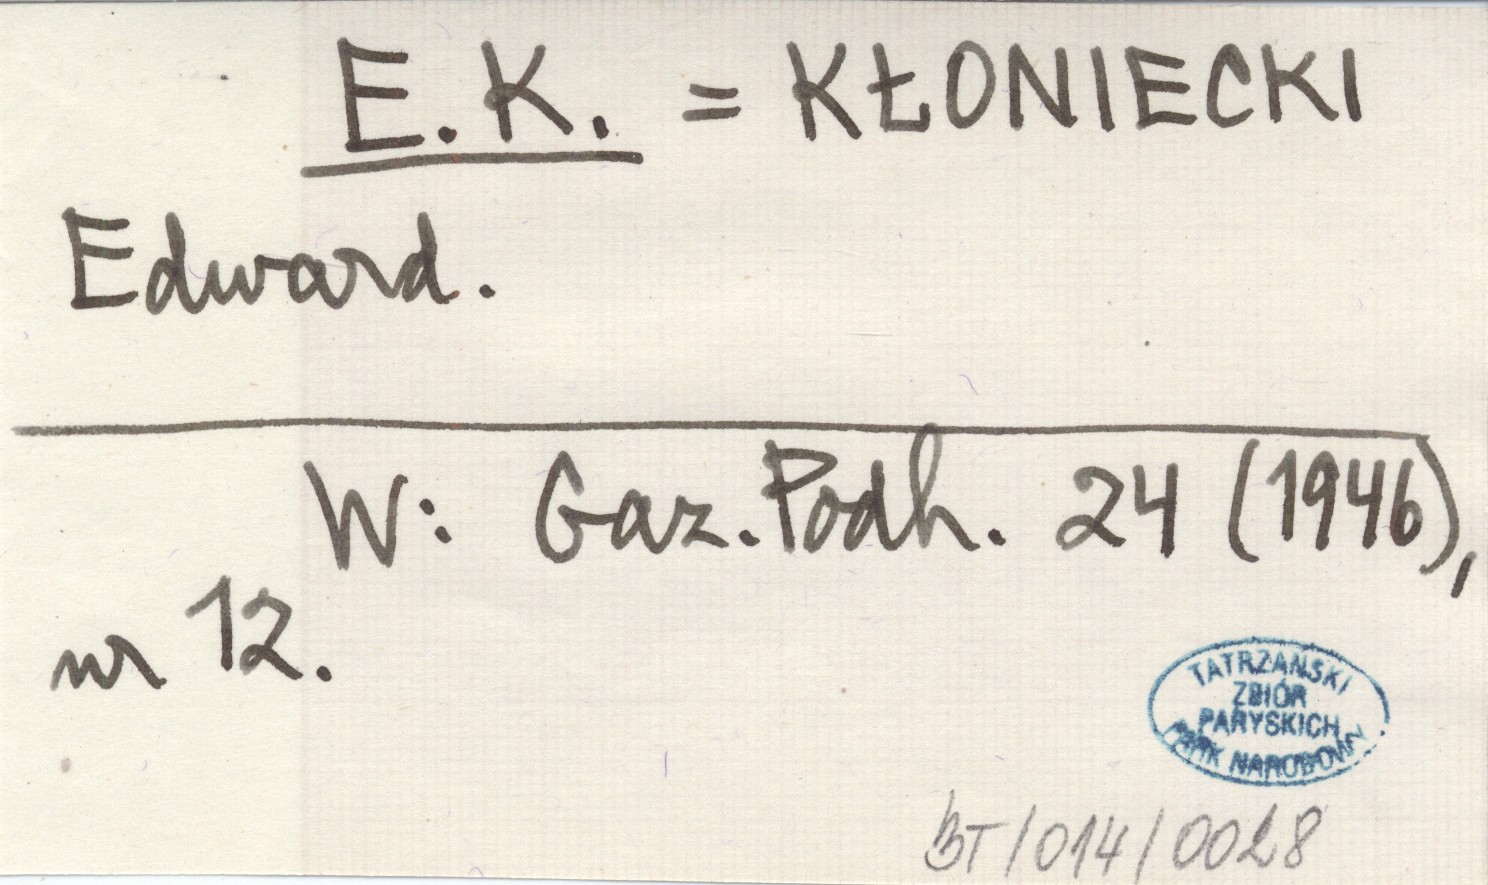 E.K. = KŁONIECKI
Edward.
W: Gaz. Podh. 24 (1946),
nr 12.
TATRZAŃSKI
ZBIÓR
PARYSKICH
PARK NARODOWY
BT/014/0028